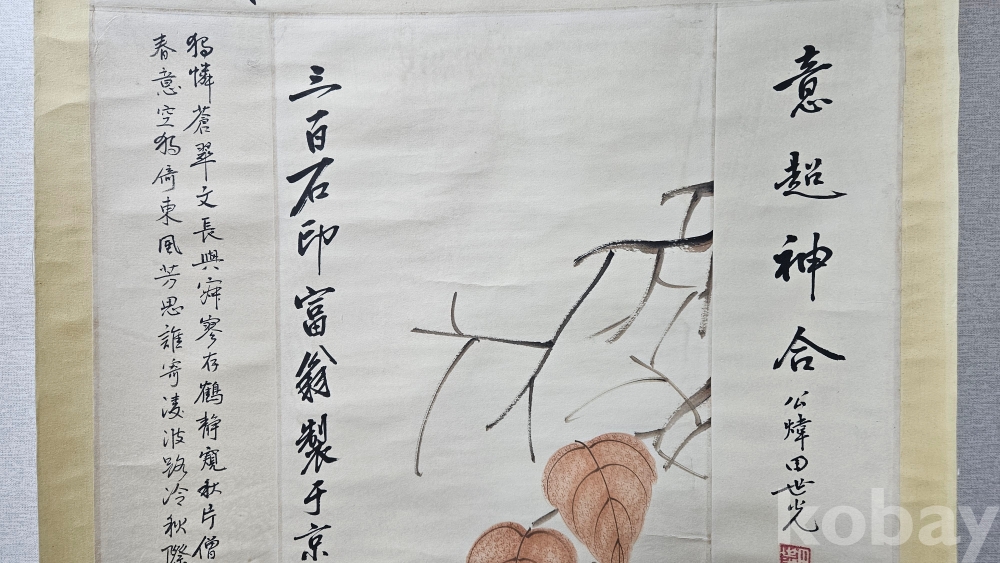 意超神合
公煒田世光
三百石印富翁製于京
獨憐蒼翠文長與寂寥存鶴靜窺秋片僧
春意空獨倚東風芳思誰寄凌波路冷秋際
kobay